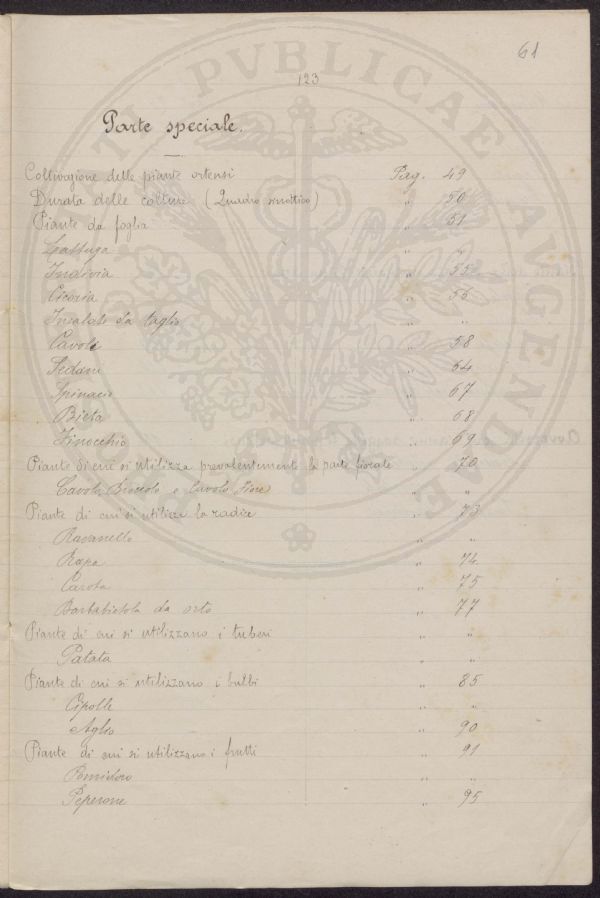 61
123
Parte speciale.
Coltivazione delle piante ortensi Pag. 49
Durata delle colture (Quadro sinottico) " 50
Piante da foglia " 51
Lattuga " "
Indivia " 55
Cicoria " 56
Insalate da taglio " "
Cavoli " 58
Sedani " 64
Spinacio " 67
Bieta " 68
Finocchio " 69
Piante di cui si utilizza prevalentemente la parte fiorale " 70
Cavolo Broccolo e Cavolo Fiore " "
Piante di cui si utilizza la radice " 73
Ravanello " "
Rapa " 74
Carota " 75
Barbabietola da orto " 77
Piante di cui si utilizzano i tuberi " "
Patata " "
Piante di cui si utilizzano i bulbi " 85
Cipolle " "
Aglio " 90
Piante di cui si utilizzano i frutti " 91
Pomidoro " "
Peperone " 95
PVBLICAE AVGENDAE